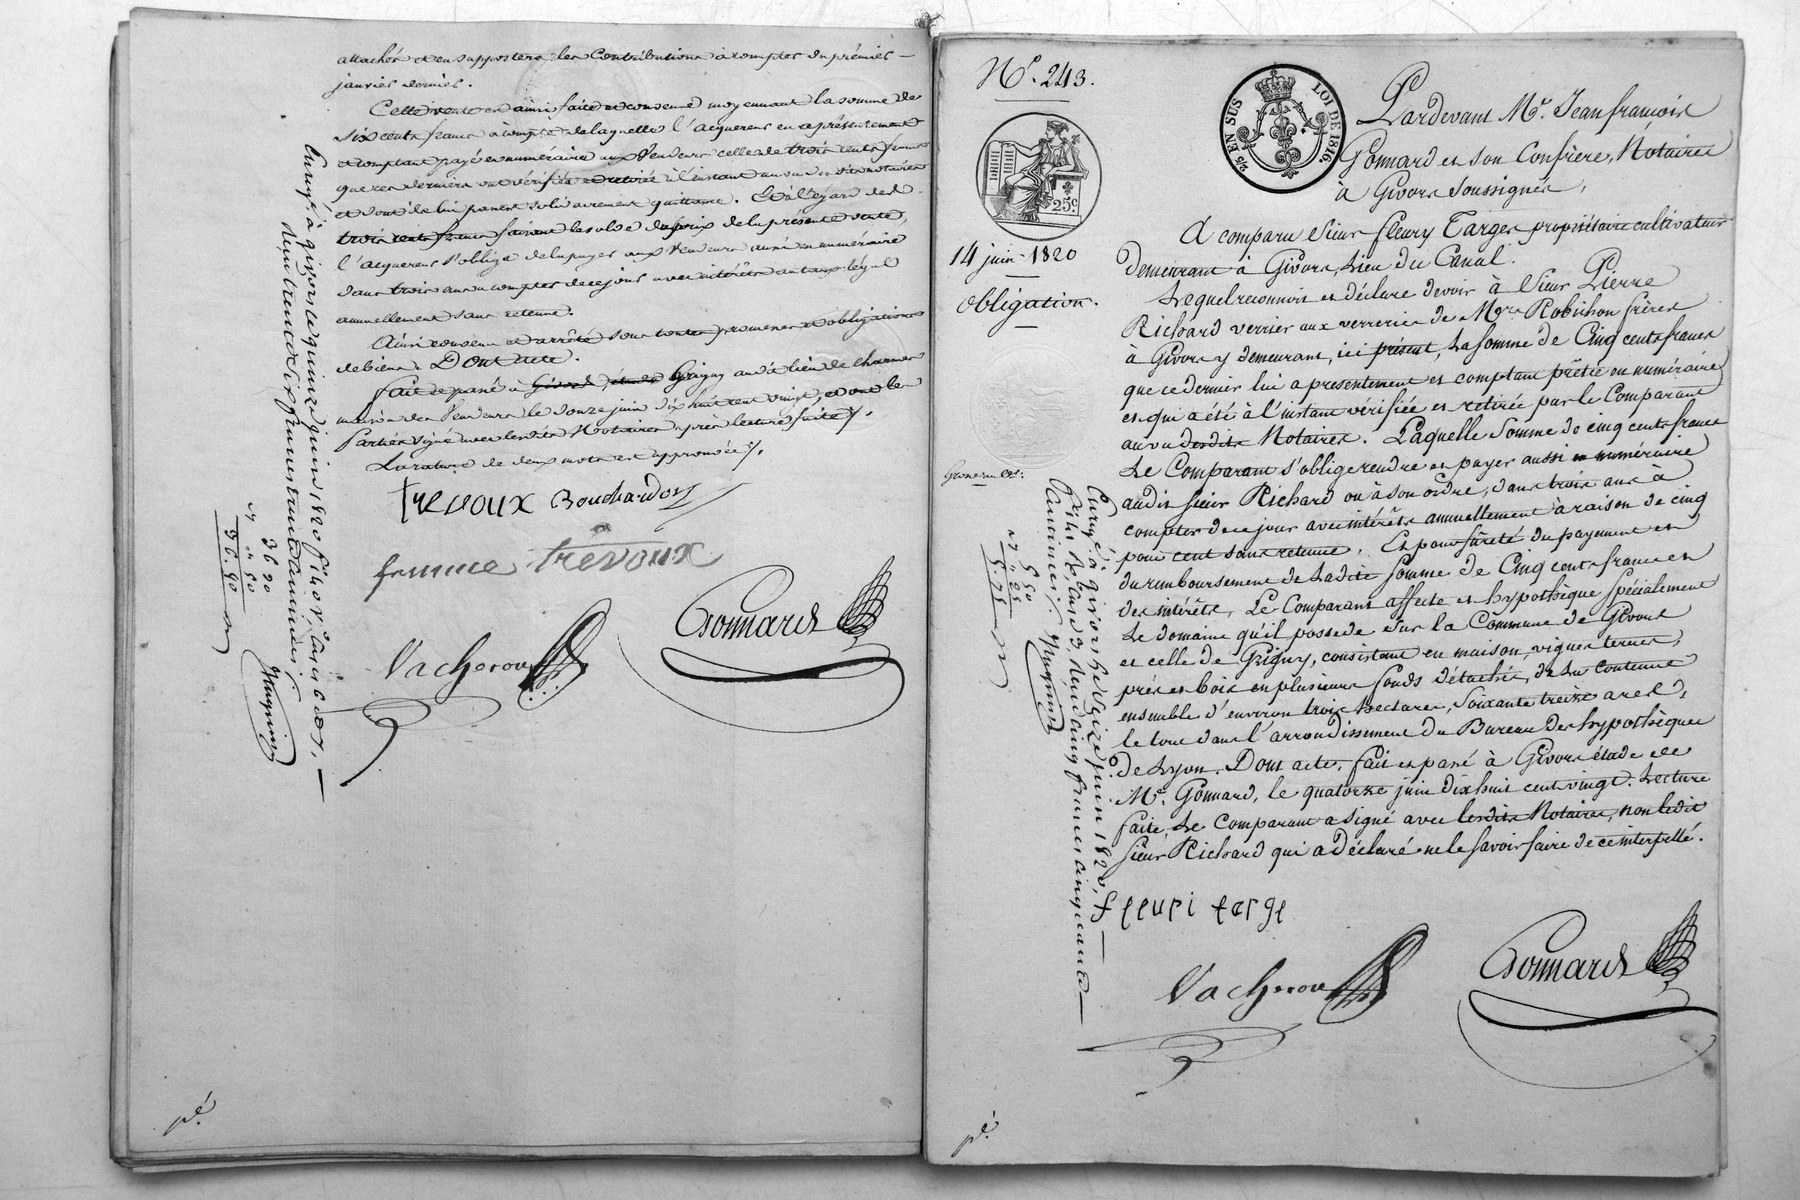 attachés et en supportera les Contributions à compter du prémier
janvier dernier.
Cette vente est ainsi faite et convenue moyennant la somme de
Six cents francs à compte de laquelle l'acquereur en a présentement
et comptant payé en numéraire aux Vendeurs celle de trois cents francs
que ces derniers ont vérifiée et retirée à l'instant au vu des dits notaires
et dont ils lui passent solidairement quittance. Et à l'égard des
trois cents francs faisant le solde du prix de la présente vente,
l'acquereur s'oblige de les payer aux Vendeurs aussi en numéraire
dans trois ans à compter de ce jour avec intérêts au taux légal
annuellement sans retenue.
Ainsi convenu et arrêté sous toutes promesses et obligations
de biens. Dont acte.
fait et passé à Grigny au dit lieu de
maison des Vendeurs le douze juin dix huit cent vingt, et ont les
parties signé avec lesdits Notaires après lecture faite /.
La rature de deux mots est approuvée /.
trevoux Bouchardon
femme trevoux
Vacheron
Gonnard
Enregé. à givors le quinze juin 1820 fº
reçu trente six francs trente centimes
Mugnier
36 30
50
36. 80
pé.
Nº. 243.
25 EN SUS
LOI DE 1816
25 c
14 juin 1820
obligation.
Pardevant Me. Jean françois
Gonnard et son Confrère, Notaires
à Givors Soussignés,
A comparu Sieur fleury Targes propriétaire cultivateur
demeurant à Givors, Lieu du Canal.
Lequel reconnoit et déclare devoir à Sieur Pierre
Richard verrier aux verreries de Mrs. Robichon frères
à Givors y demeurant, ici présent, La somme de Cinq cents francs
que ce dernier lui a présentement et comptant prêtée en numéraire
et qui a été à l'instant vérifiée et retirée par le Comparant
au vu desdits Notaires. Laquelle Somme de cinq cents francs
Le Comparant s'oblige rendre et payer aussi en numéraire
audit Sieur Richard ou à son ordre, dans trois ans à
compter de ce jour avec intérêts annuellement à raison de cinq
pour cent sans retenue. Et pour sûreté du payement et
du remboursement de Ladite Somme de Cinq cents francs et
des intérêts, Le Comparant affecte et hypothèque spécialement
Le domaine qu'il possede sur la Commune de Givors
et celle de Grigny, consistant en maison, vignes terres,
prés et bois en plusieurs fonds détachés, de la Contenue
ensemble d'environ trois hectares, Soixante treize ares,
le tout dans l'arrondissement du Bureau des hypothèques
de Lyon. Dont acte, fait et passé à Givors étude de
Me. Gonnard, le quatorze juin dix huit cent vingt. Lecture
faite, Le Comparant a signé avec lesdits Notaires, non ledit
Sieur Richard qui a déclaré ne le savoir faire de ce interpellé.
fleuri targe
Vacheron
Gonnard
Enregé. à givors le seize juin 1820,
reçu cinq francs cinquante
centimes /. Mugnier
5 50
25
5. 75
pé.